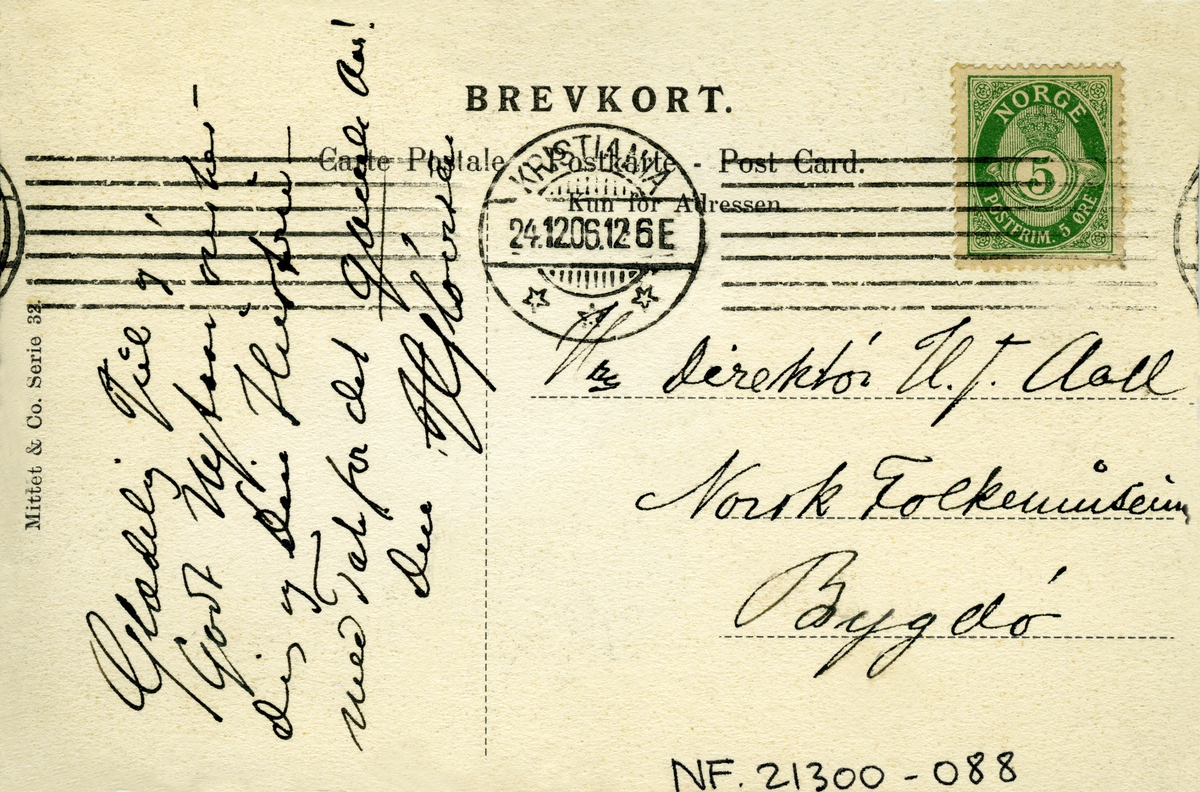 BREVKORT.
Carte Postale - Postkarte - Post Card.
Kun for Adressen.
KRISTIANIA
24.12.06.12-6 E
NORGE
5
POSTFRIM. 5 ØRE
Mittet & Co. Serie 32.
Glædelig Jul og
Godt Nytaar ønskes
dig og Din Hustru
med Tak for det gamle Aar!
Din
Hr. Direktör H. J. Aall
Norsk Folkemuseum
Bygdö
NF. 21300-088